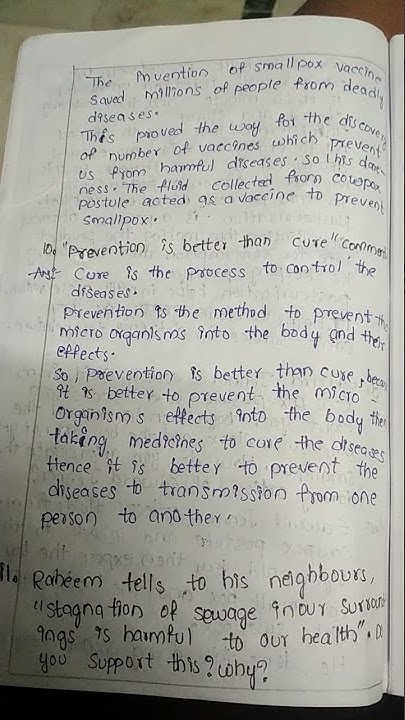 The Invention of smallpox vaccine
saved millions of people from deadly
diseases.
This proved the way for the discovery
of number of vaccines which prevent
us from harmful diseases. so I his dane
ness. The fluid collected from cowpox
postule acted as a vaccine to prevent
smallpox.
10. "Prevention is better than cure" comment
Ans: Cure is the process to control the
diseases.
prevention is the method to prevent the
micro organisms into the body and their
effects.
So, prevention is better than cure, becau
it is better to prevent the micro
organisms effects into the body then
taking medicines to cure the diseases
Hence it is better to prevent the
diseases to transmission from one
person to another.
11. Raheem tells to his neighbours,
"stagnation of sewage in our surround
ings is harmful to our health". Do
you support this? Why?